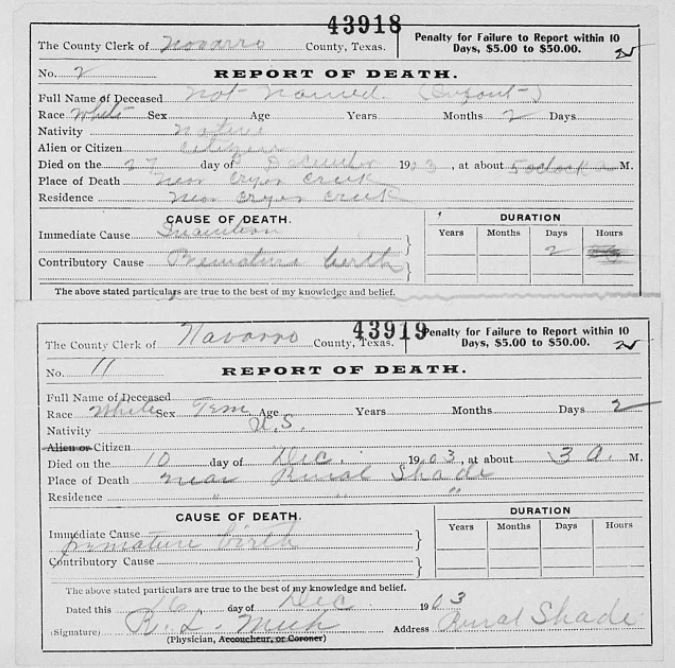 43918
The County Clerk of Navarro County, Texas.
Penalty for Failure to Report within 10
Days, $5.00 to $50.00.
No. 2
REPORT OF DEATH.
Full Name of Deceased Not Named. (Infant)
Race White Sex Age Years Months 2 Days
Nativity Native
Alien or Citizen Citizen
Died on the 27 day of December 1903, at about 5 oclock a M.
Place of Death Near Cryer Creek
Residence Near Cryer Creek
CAUSE OF DEATH.
DURATION
Immediate Cause Inanition
Years Months Days Hours
2
Contributory Cause Premature birth
The above stated particulars are true to the best of my knowledge and belief.
43919
The County Clerk of Navarro County, Texas.
Penalty for Failure to Report within 10
Days, $5.00 to $50.00.
No. 11
REPORT OF DEATH.
Full Name of Deceased
Race White Sex Fem Age Years Months Days 2
Nativity U.S.
Alien or Citizen
Died on the 10 day of Dec. 1903, at about 3 a. M.
Place of Death near Rural Shade
Residence " " "
CAUSE OF DEATH.
DURATION
Immediate Cause
Years Months Days Hours
premature birth
Contributory Cause
The above stated particulars are true to the best of my knowledge and belief.
Dated this 16 day of Dec 1903
(Signature) R. L. Address Rural Shade
(Physician, Accoucheur, or Coroner)